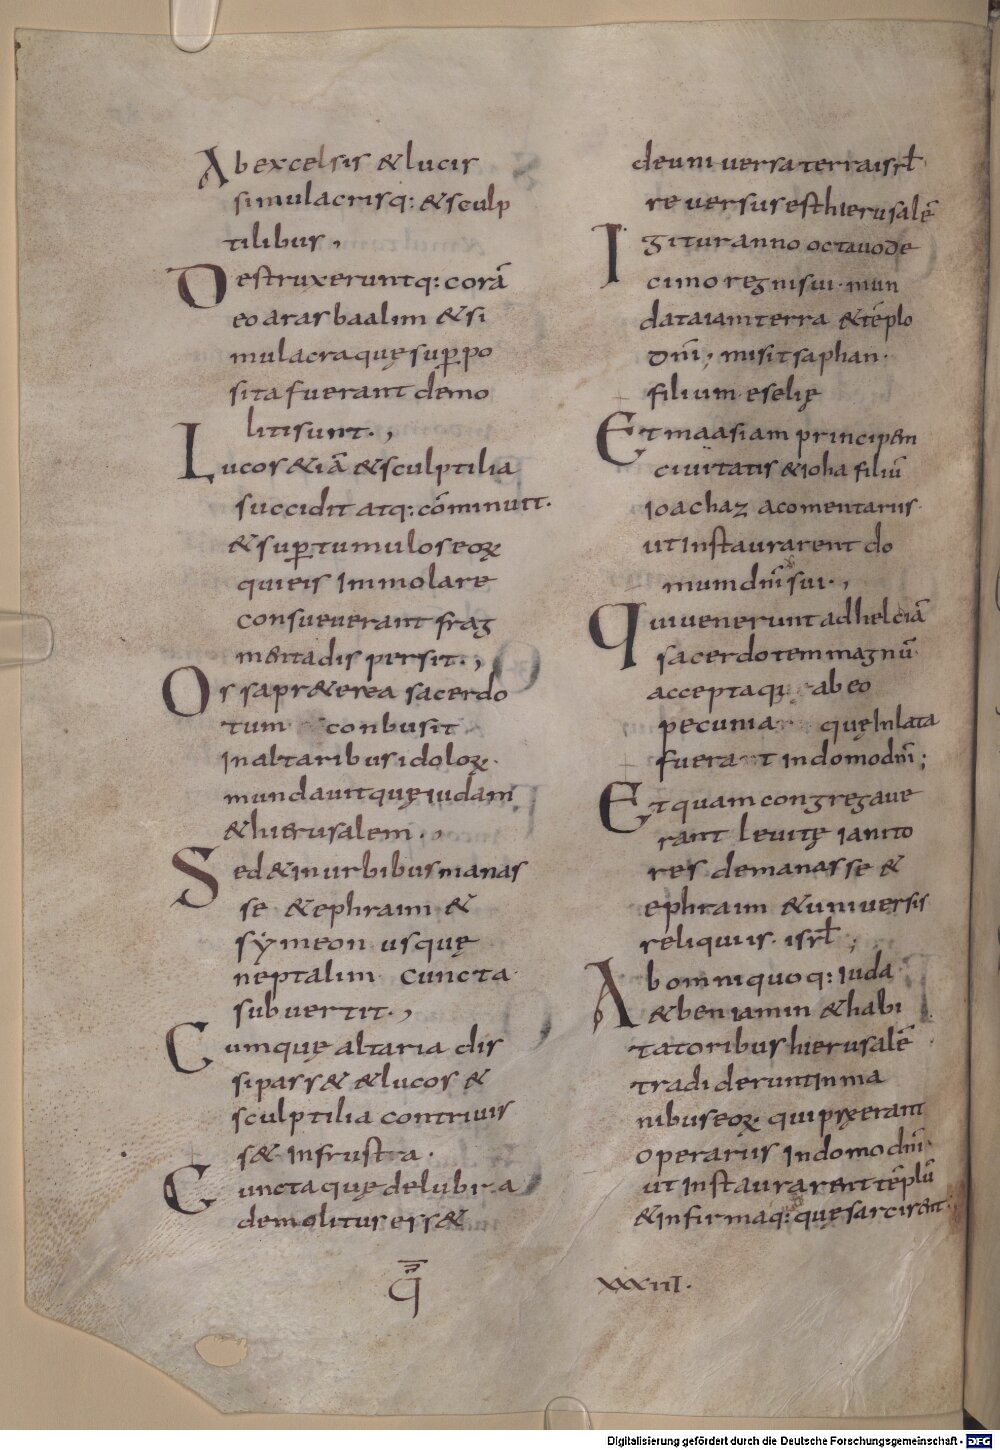 Ab excelsis & lucis
simulacrisq: & sculp
tilibus,
Destruxeruntq: corā
eo aras baalim & si
mulacra quę sup̱ po
sita fuerant demo
liti sunt.,
Lucos &iā & sculptilia
succidit atq: cōminuit.
& sup̱ tumulos eoꝝ
qui eis immolare
consueverant frag
m&nta dispersit.,
Ossa pr&erea sacerdo
tum conbusit
in altaribus idoloꝝ.
mundavitquę iudam
& hierusalem.,
Sed & in urbibus manas
se & ephraim &
sẏmeon usquę
neptalim cuncta
subvertit.,
Cumquę altaria dis
sipass& & lucos &
sculptilia contrivis
s& in frustra.
Cunctaquę delubra
demolitus ess&
q̄
de universa terra isrł
reversus est hierusalē
Igitur anno octavo de
cimo regni sui. mun
data iam terra & tēplo
dn̄i, misit saphan.
filium eselię
Et maasiam principem
civitatis & ioha filiū
ioachaz a comentariis.
ut instaurarent do
mum dn̄i sui.,
Qui venerunt ad helciā
sacerdotem magnū
acceptaq; ab eo
pecunia quę inlata
fuerant in domo dn̄i;
Et quam congregave
rant levitę ianito
res de manasse &
ephraim & universis
reliquiis. isrł;
Ab omni quoq: iuda
& beniamin & habi
tatoribus hierusalē
tradiderunt in ma
nibus eoꝝ. qui pręerant
operariis in domo dn̄i.
ut instaurarent tēplū
& infirmaq: quę sarcirent.
xxxiii.
Digitalisierung gefördert durch die Deutsche Forschungsgemeinschaft - DFG